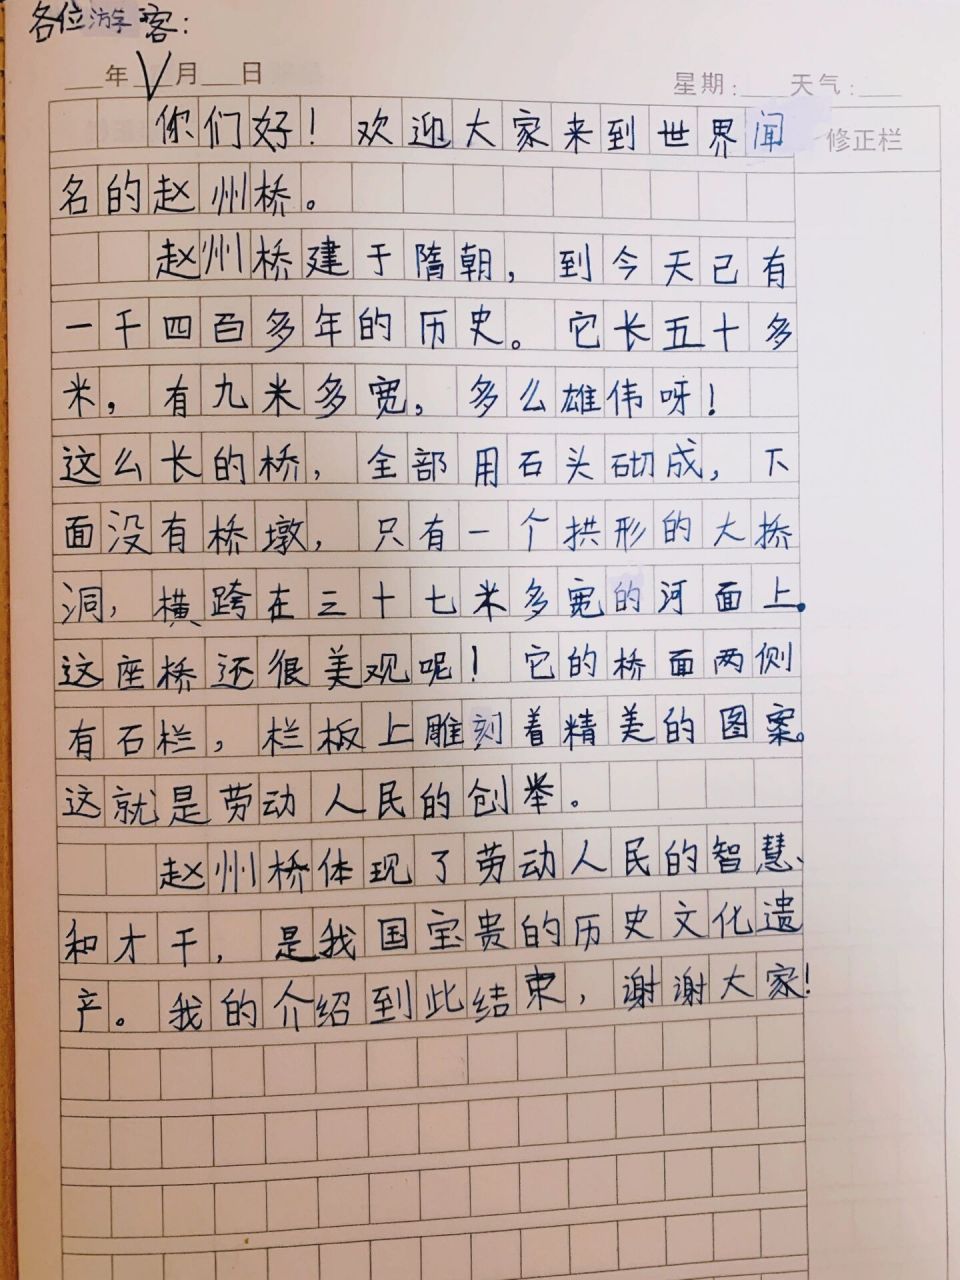 各位游客：
年 月 日 星期： 天气：
你们好！欢迎大家来到世界闻
修正栏
名的赵州桥。
赵州桥建于隋朝，到今天已有
一千四百多年的历史。它长五十多
米，有九米多宽，多么雄伟呀！
这么长的桥，全部用石头砌成，下
面没有桥墩，只有一个拱形的大桥
洞，横跨在三十七米多宽的河面上。
这座桥还很美观呢！它的桥面两侧
有石栏，栏板上雕刻着精美的图案。
这就是劳动人民的创举。
赵州桥体现了劳动人民的智慧、
和才干，是我国宝贵的历史文化遗
产。我的介绍到此结束，谢谢大家！